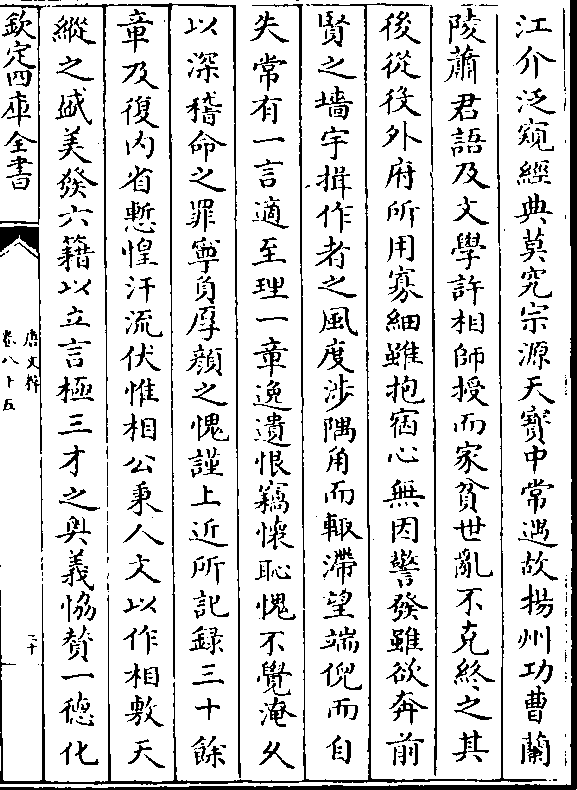 江介泛窺經典莫究宗源天寶中常遇故揚州功曹蘭
陵蕭君語及文學許相師授而家貧世亂不克終之其
後從役外府所用寡細雖抱宿心無因警發雖欲奔前
賢之墻宇揖作者之風度涉隅角而輙滯望端倪而自
失常有一言適至理一章逸遺恨竊懐恥愧不覺淹久
以深稽命之罪寧負厚顔之愧謹上近所記録三十餘
章及復内省慙惶汗流伏惟相公秉人文以作相敷天
縱之盛美發六籍以立言極三才之奥義恊賛一德化
欽定四庫全書
唐文粹
卷八十五
二十